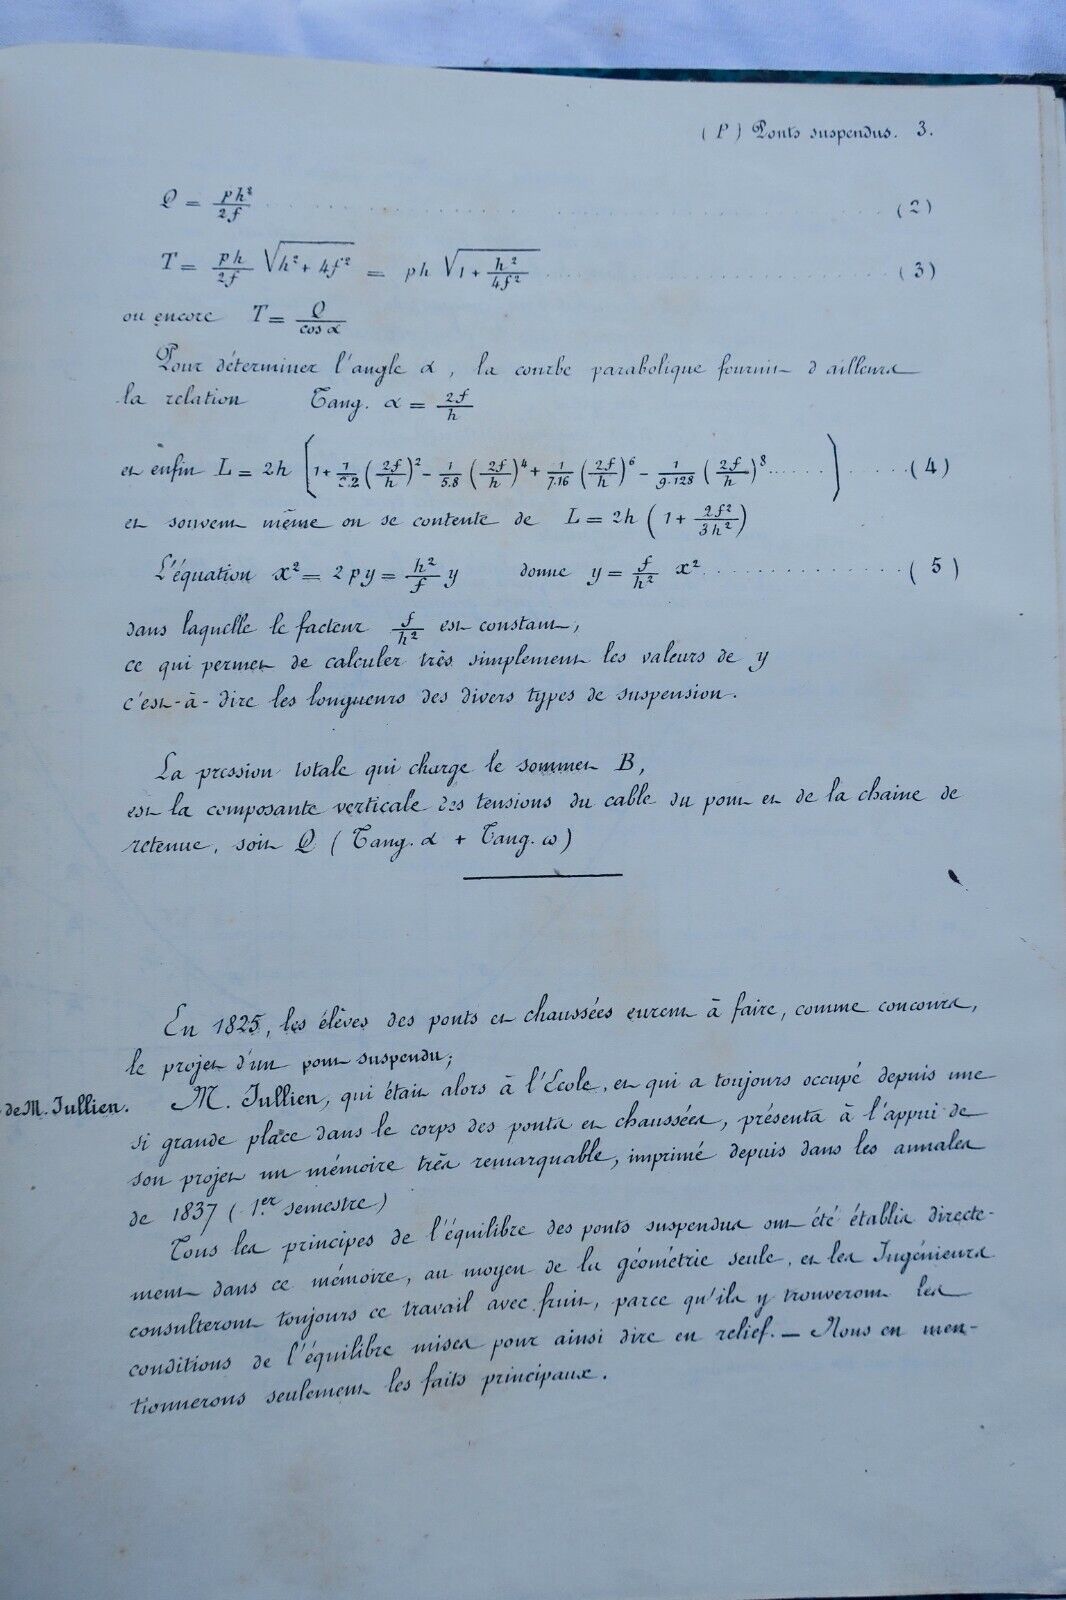 (P) Ponts suspendus. 3.
Q = ph²/2f ........ (2)
T = ph/2f √(h² + 4f²) = ph √(1 + h²/4f²) ........ (3)
ou encore T = Q/cos α
Pour déterminer l'angle α, la courbe parabolique fournit d'ailleurs
la relation Tang. α = 2f/h
et enfin L = 2h [1 + 1/2.2 (2f/h)² - 1/5.8 (2f/h)⁴ + 1/7.16 (2f/h)⁶ - 1/9.128 (2f/h)⁸ ......] ...... (4)
et souvent même on se contente de L = 2h (1 + 2f²/3h²)
L'équation x² = 2py = h²/f y donne y = f/h² x² ........ (5)
dans laquelle le facteur f/h² est constant,
ce qui permet de calculer très simplement les valeurs de y
c'est-à-dire les longueurs des divers types de suspension.
La pression totale qui charge le sommet B,
est la composante verticale des tensions du cable du pont et de la chaine de
retenue, soit Q (Tang. α + Tang. ω)
En 1825, les élèves des ponts et chaussées eurent à faire, comme concours,
le projet d'un pont suspendu;
de M. Jullien. M. Jullien, qui était alors à l'Ecole, et qui a toujours occupé depuis une
si grande place dans le corps des ponts et chaussées, présenta à l'appui de
son projet un mémoire très remarquable, imprimé depuis dans les annales
de 1837 (1.er semestre)
Tous les principes de l'équilibre des ponts suspendus ont été établis directe-
ment dans ce mémoire, au moyen de la géométrie seule, et les Ingénieurs
consulteront toujours ce travail avec fruit, parce qu'ils y trouveront les
conditions de l'équilibre mises pour ainsi dire en relief. — Nous en men-
tionnerons seulement les faits principaux.